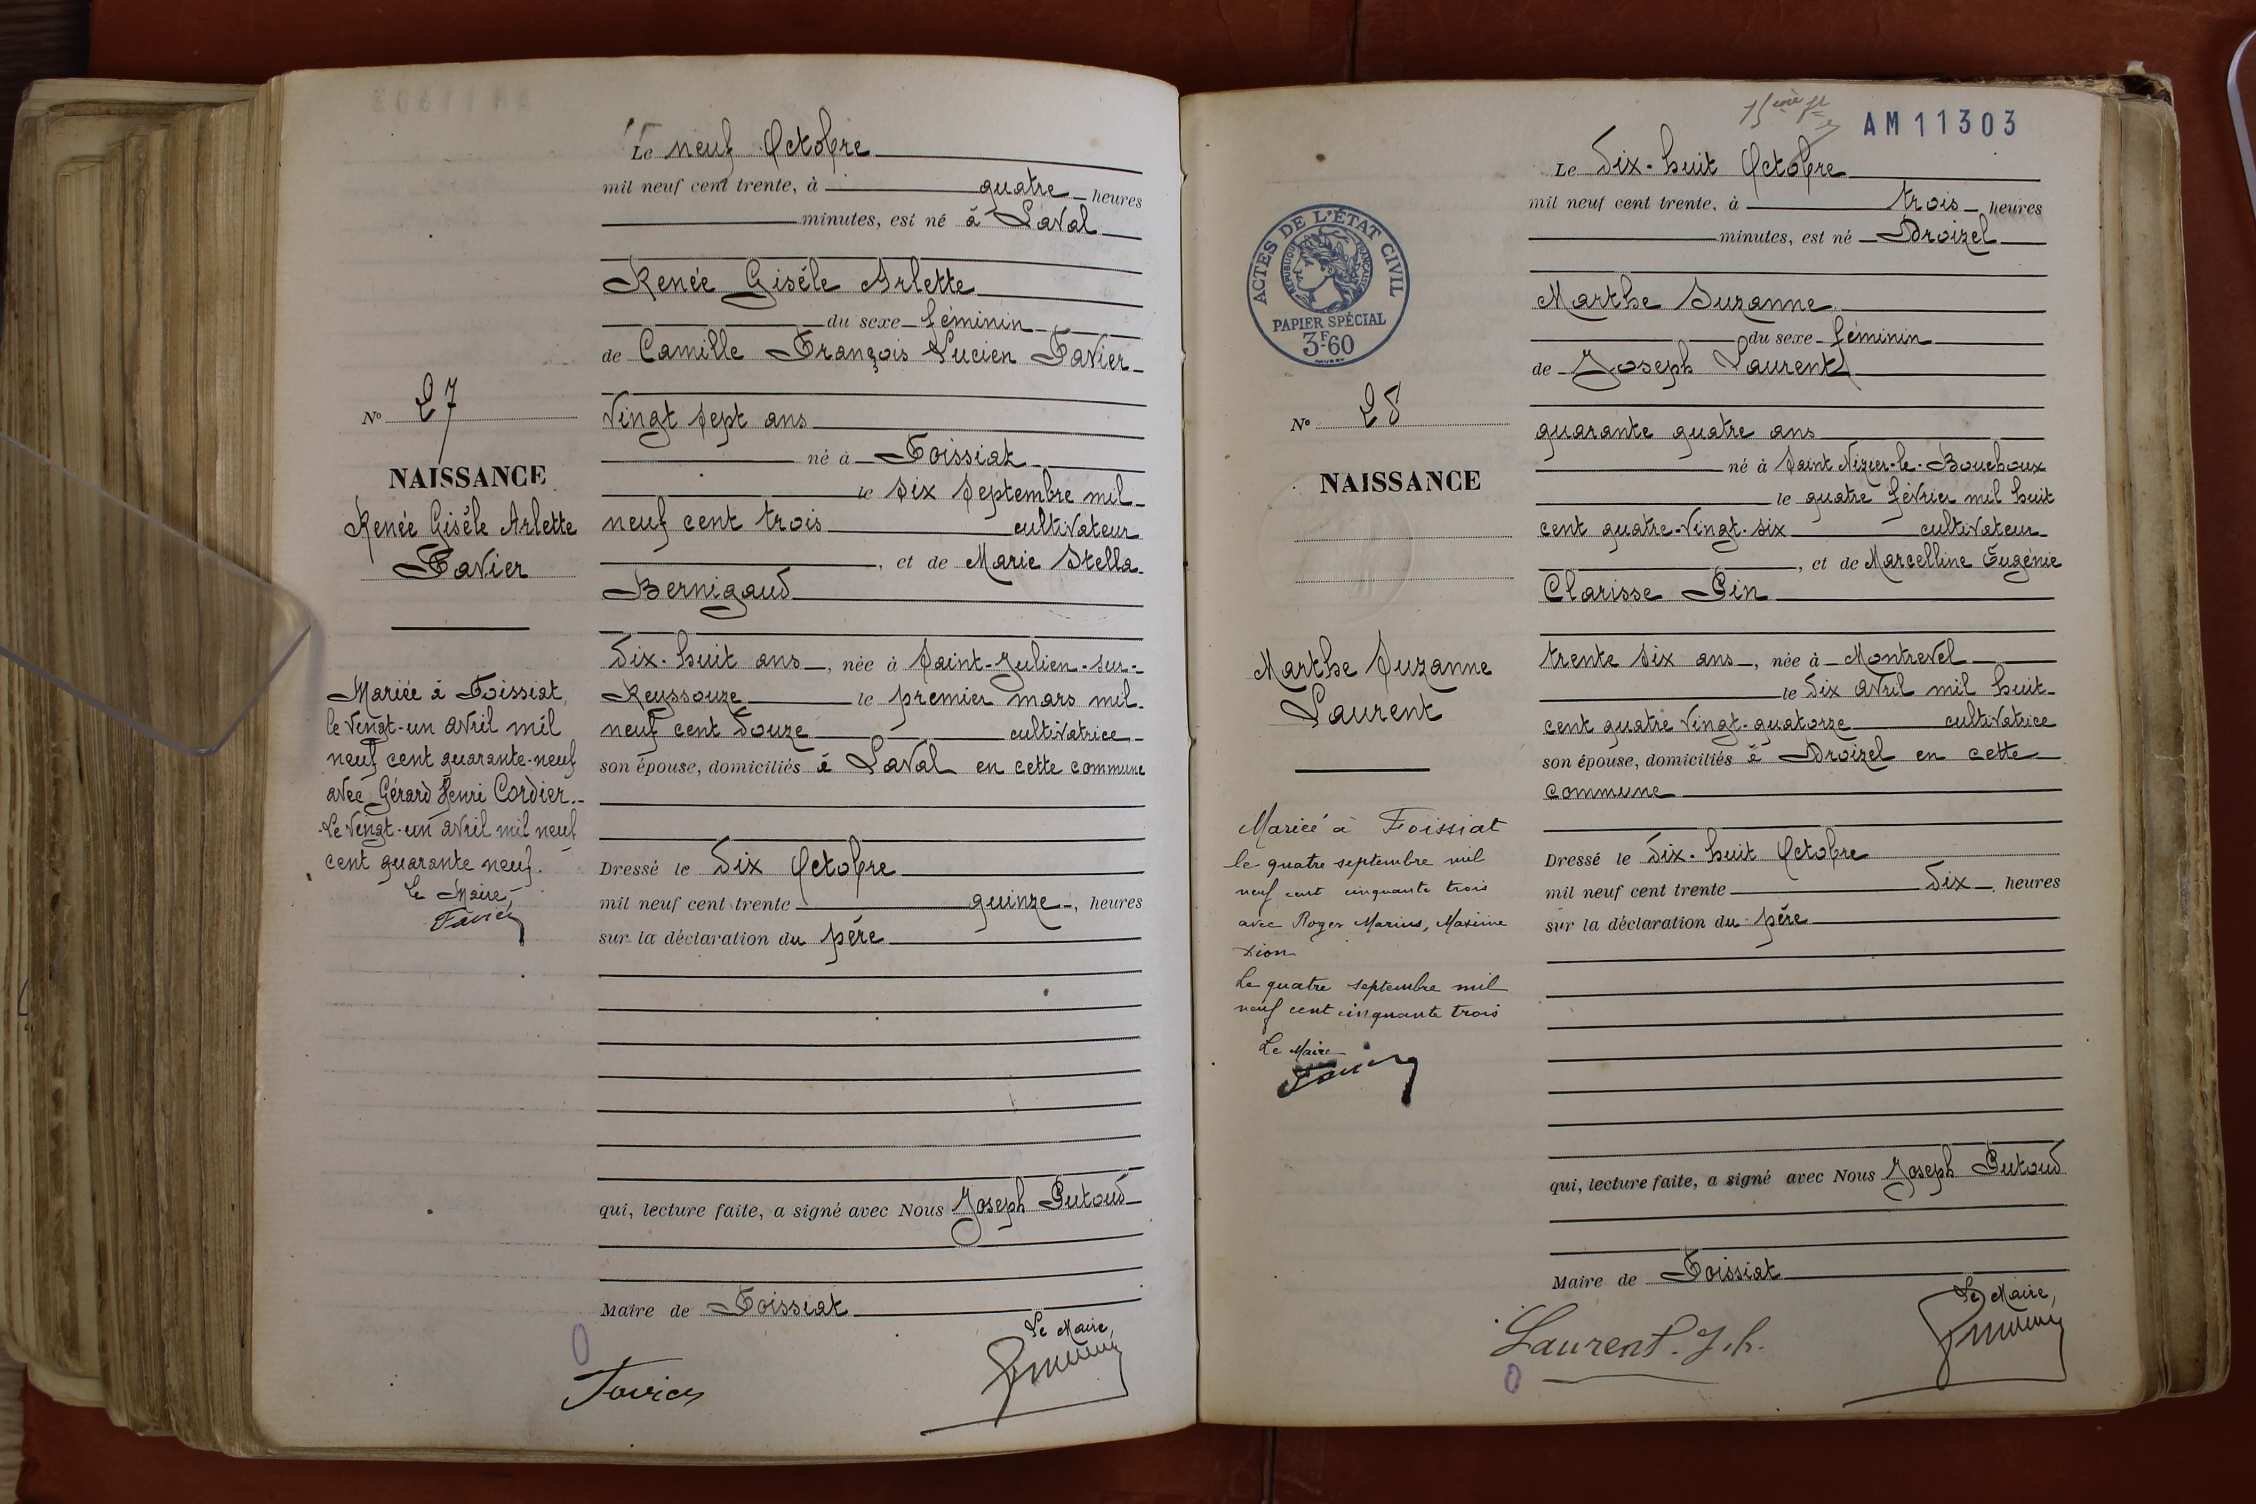 Le neuf Octobre
mil neuf cent trente, à quatre heures
minutes, est né à Laval
Renée Gisèle Arlette
du sexe féminin
de Camille François Lucien Favier
Vingt sept ans
né à Foissiat
le six septembre mil
neuf cent trois cultivateur
, et de Marie Stella
Bernigaud
Dix-huit ans, née à Saint-Julien-sur-
Reyssouze le premier mars mil
neuf cent douze cultivatrice
son épouse, domiciliés à Laval en cette commune
Dressé le Dix Octobre
mil neuf cent trente quinze, heures
sur la déclaration du père
qui, lecture faite, a signé avec Nous Joseph Putoud
Maire de Foissiat
Le Maire,
Favier
No 27
NAISSANCE
Renée Gisèle Arlette
Favier
Mariée à Foissiat,
le Vingt-un avril mil
neuf cent quarante-neuf
avec Gérard Henri Cordier.-
Le Vingt-un avril mil neuf
cent quarante neuf.
Le Maire,
Favier
AM11303
Le Dix-huit Octobre
mil neuf cent trente, à trois heures
minutes, est né Droizel
Marthe Suzanne
du sexe féminin
de Joseph Laurent
quarante quatre ans
né à Saint Nizier-le-Bouchoux
le quatre février mil huit
cent quatre-Vingt-six cultivateur
, et de Marcelline Eugénie
Clarisse Pin
trente six ans, née à Montrevel
le Dix avril mil huit
cent quatre Vingt-quatorze cultivatrice
son épouse, domiciliés à Droizel en cette
commune
Dressé le Dix-huit Octobre
mil neuf cent trente Dix, heures
sur la déclaration du père
qui, lecture faite, a signé avec Nous Joseph Putoud
Maire de Foissiat
Le Maire,
Laurent. J.h.
ACTES DE L'ÉTAT CIVIL
RÉPUBLIQUE FRANÇAISE
PAPIER SPÉCIAL
3F.60
No 28
NAISSANCE
Marthe Suzanne
Laurent
Mariée à Foissiat
le quatre septembre mil
neuf cent cinquante trois
avec Roger Marius, Maxime
Dion
Le quatre septembre mil
neuf cent cinquante trois
Le Maire
Favier